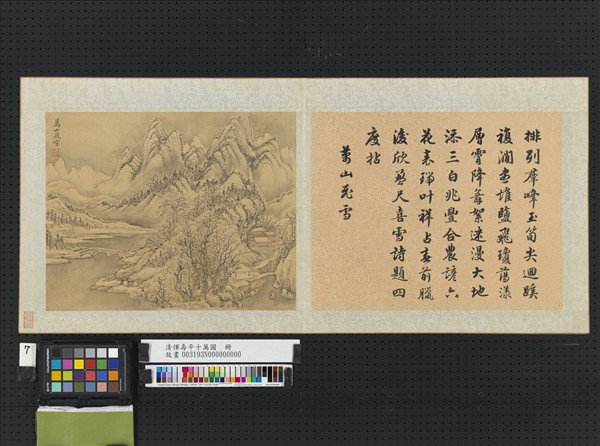 排列群峰玉筍尖迴蹊
複澗盡堆鹽飛瓊蕩漾
層霄降舞絮迷漫大地
添三白兆豐合農諺六
花表瑞叶祥占春前臘
後欣盈尺喜雪詩題四
度拈
萬山飛雪
萬山飛雪
7
清惲壽平十萬圖 冊
故畫 003193N000000000